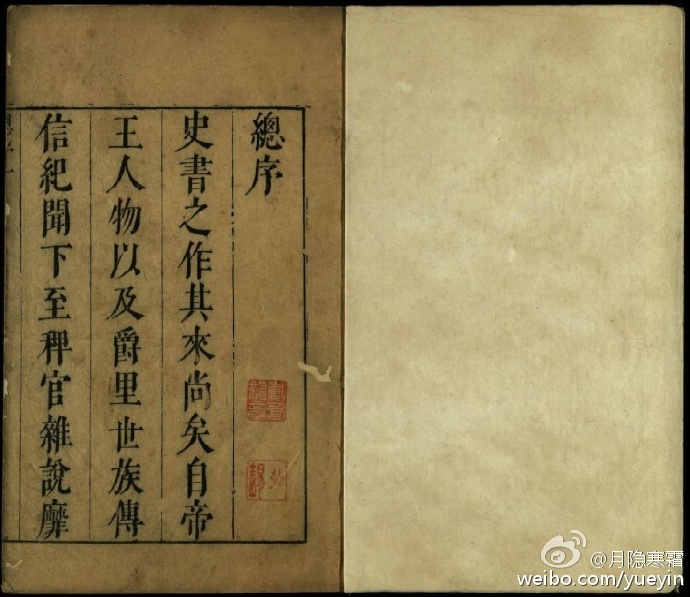 總序
史書之作其來尚矣自帝
王人物以及爵里世族傳
信紀聞下至稗官雜說靡
@月隐寒霜
weibo.com/yueyin